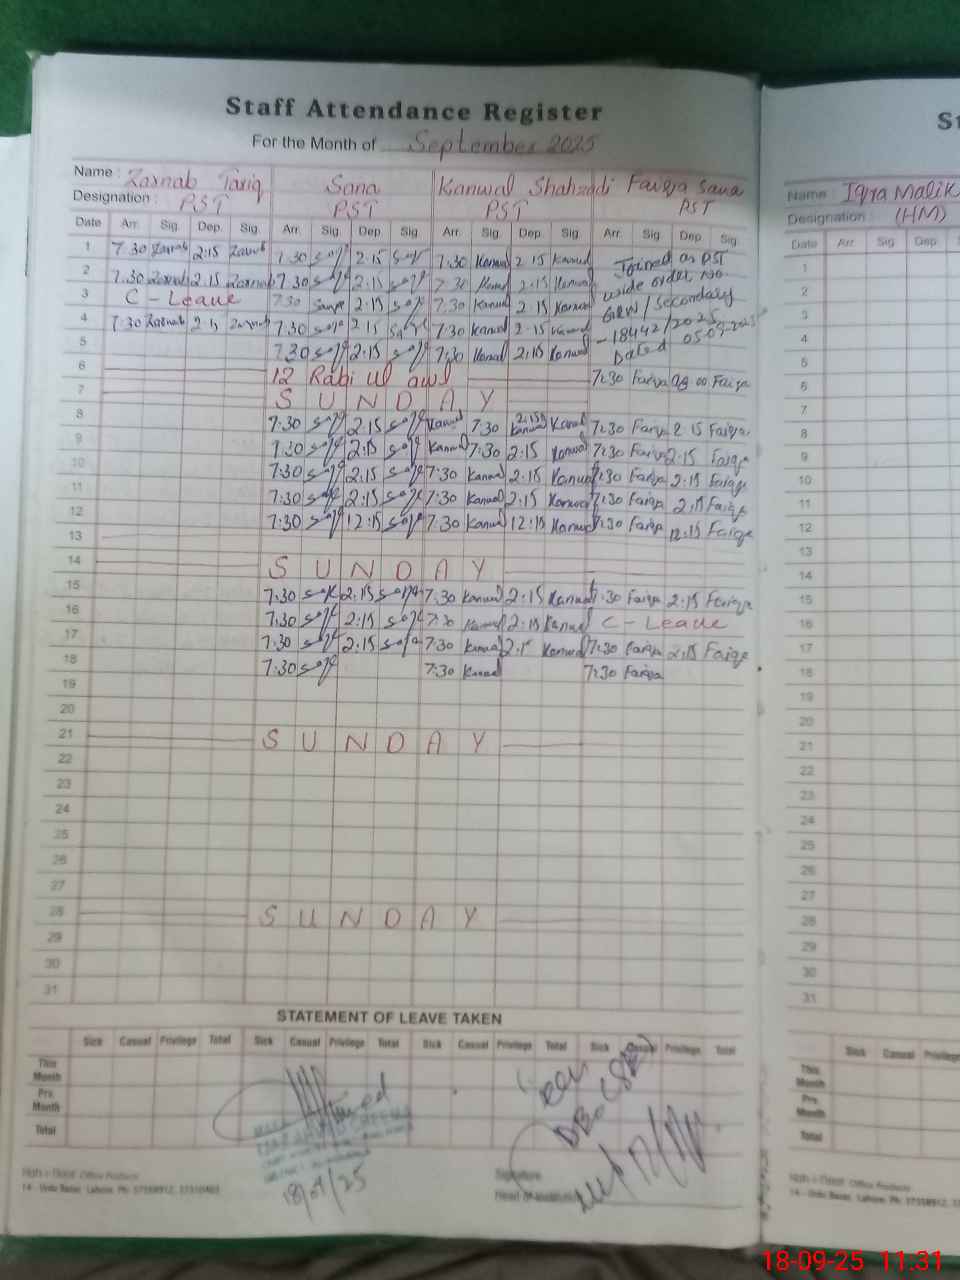 Staff Attendance Register
For the Month of September 2025
Name : Zarnab Tariq Sana Kanwal Shahzadi Faiqa Sana
Designation : PST PST PST PST
Date Arr. Sig. Dep. Sig. Arr. Sig. Dep. Sig. Arr. Sig. Dep. Sig. Arr. Sig. Dep. Sig.
1 7:30 Zarnab 2:15 Zarnab 7:30 2:15 7:30 Kanwal 2:15 Kanwal Joined as PST
2 7:30 Zarnab 2:15 Zarnab 7:30 2:15 7:30 Kanwal 2:15 Kanwal wide order No.
3 C - Leave 7:30 2:15 7:30 Kanwal 2:15 Kanwal GRW/Secondary
4 7:30 Zarnab 2:15 Zarnab 7:30 2:15 7:30 Kanwal 2:15 Kanwal -18442/2025
5 7:30 2:15 7:30 Kanwal 2:15 Kanwal Dated 05-09-2025
6 12 Rabi ul awl 7:30 Faiqa 08:00 Faiqa
7 SUNDAY
8 7:30 2:15 Kanwal 7:30 2:15 Kanwal Kanwal 7:30 Faiqa 2:15 Faiqa
9 7:30 2:15 Kanwal 7:30 2:15 Kanwal 7:30 Faiqa 2:15 Faiqa
10 7:30 2:15 7:30 Kanwal 2:15 Kanwal 7:30 Faiqa 2:15 Faiqa
11 7:30 2:15 7:30 Kanwal 2:15 Kanwal 7:30 Faiqa 2:15 Faiqa
12 7:30 12:15 7:30 Kanwal 12:15 Kanwal 7:30 Faiqa 12:15 Faiqa
13
14 SUNDAY
15 7:30 2:15 7:30 Kanwal 2:15 Kanwal 7:30 Faiqa 2:15 Faiqa
16 7:30 2:15 7:30 Kanwal 2:15 Kanwal C - Leave
17 7:30 2:15 7:30 Kanwal 2:15 Kanwal 7:30 Faiqa 2:15 Faiqa
18 7:30 7:30 Kanwal 7:30 Faiqa
19
20
21 SUNDAY
22
23
24
25
26
27
28 SUNDAY
29
30
31
STATEMENT OF LEAVE TAKEN
Sick Casual Privilege Total Sick Casual Privilege Total Sick Casual Privilege Total Sick Casual Privilege Total
This Month
Prv. Month
Total
Seen
18/09/25
Signature
Head of Institution
Office Products
14 - Urdu Bazar, Lahore. Ph: 37358912, 37310463
St
Name : Iqra Malik
Designation : (HM)
Date Arr. Sig. Dep.
1
2
3
4
5
6
7
8
9
10
11
12
13
14
15
16
17
18
19
20
21
22
23
24
25
26
27
28
29
30
31
Sick Casual Privilege
This Month
Prv. Month
Total
Office Products
14 - Urdu Bazar, Lahore. Ph: 37358912,
18-09-25 11:31